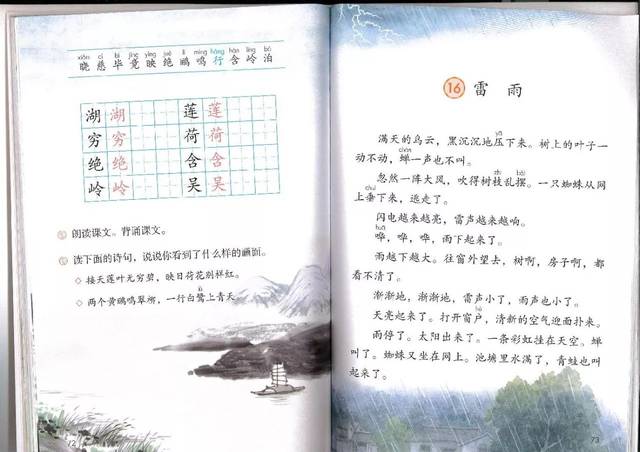 xiǎo cí bì jìng yìng jué lí míng háng hán lǐng bó
晓 慈 毕 竟 映 绝 鹂 鸣 行 含 岭 泊
湖 湖 莲 莲
穷 穷 荷 荷
绝 绝 含 含
岭 岭 吴 吴
朗读课文。背诵课文。
读下面的诗句，说说你看到了什么样的画面。
◇ 接天莲叶无穷碧，映日荷花别样红。
◇ 两个黄鹂鸣翠柳，一行白鹭上青天
72
16 雷 雨
满天的乌云，黑沉沉地压下来。树上的叶子一
动不动，蝉一声也不叫。
忽然一阵大风，吹得树枝乱摆。一只蜘蛛从网
上垂下来，逃走了。
闪电越来越亮，雷声越来越响。
哗，哗，哗，雨下起来了。
雨越下越大。往窗外望去，树啊，房子啊，都
看不清了。
渐渐地，渐渐地，雷声小了，雨声也小了。
天亮起来了。打开窗户，清新的空气迎面扑来。
雨停了。太阳出来了。一条彩虹挂在天空。蝉
叫了。蜘蛛又坐在网上。池塘里水满了，青蛙也叫
起来了。
73